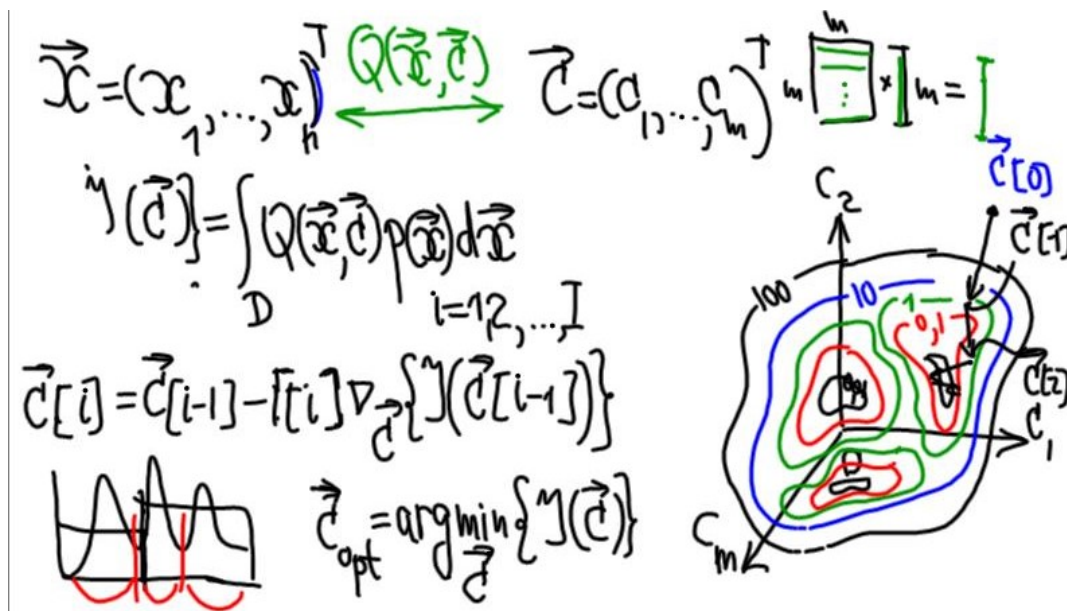 x⃗ = (x₁, ..., xₙ)ᵀ Q(x⃗, c⃗) c⃗ = (c₁, ..., cₘ)ᵀ m m × m =
J(c⃗)} = ∫ Q(x⃗, c⃗) p(x⃗) dx⃗
D i = 1,2, ..., I
c⃗[i] = c⃗[i-1] - Γ[i] ∇c⃗ {J(c⃗[i-1])}
c⃗opt = arg min c⃗ {J(c⃗)}
c⃗[0]
C₂
c⃗[1]
100 10 1 0,1
c⃗[2]
C₁
Cₘ